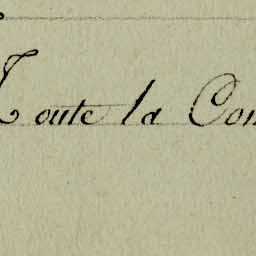 Toute la Com